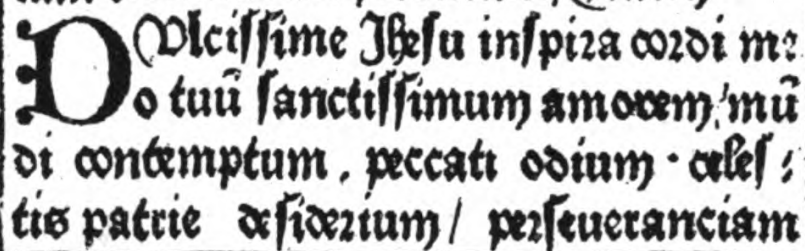 DUlcissime Jhesu inspira cordi me
o tuū sanctissimum amorem/ mū
di contemptum. peccati odium · celes:
tis patrie desiderium/ perseueranciam